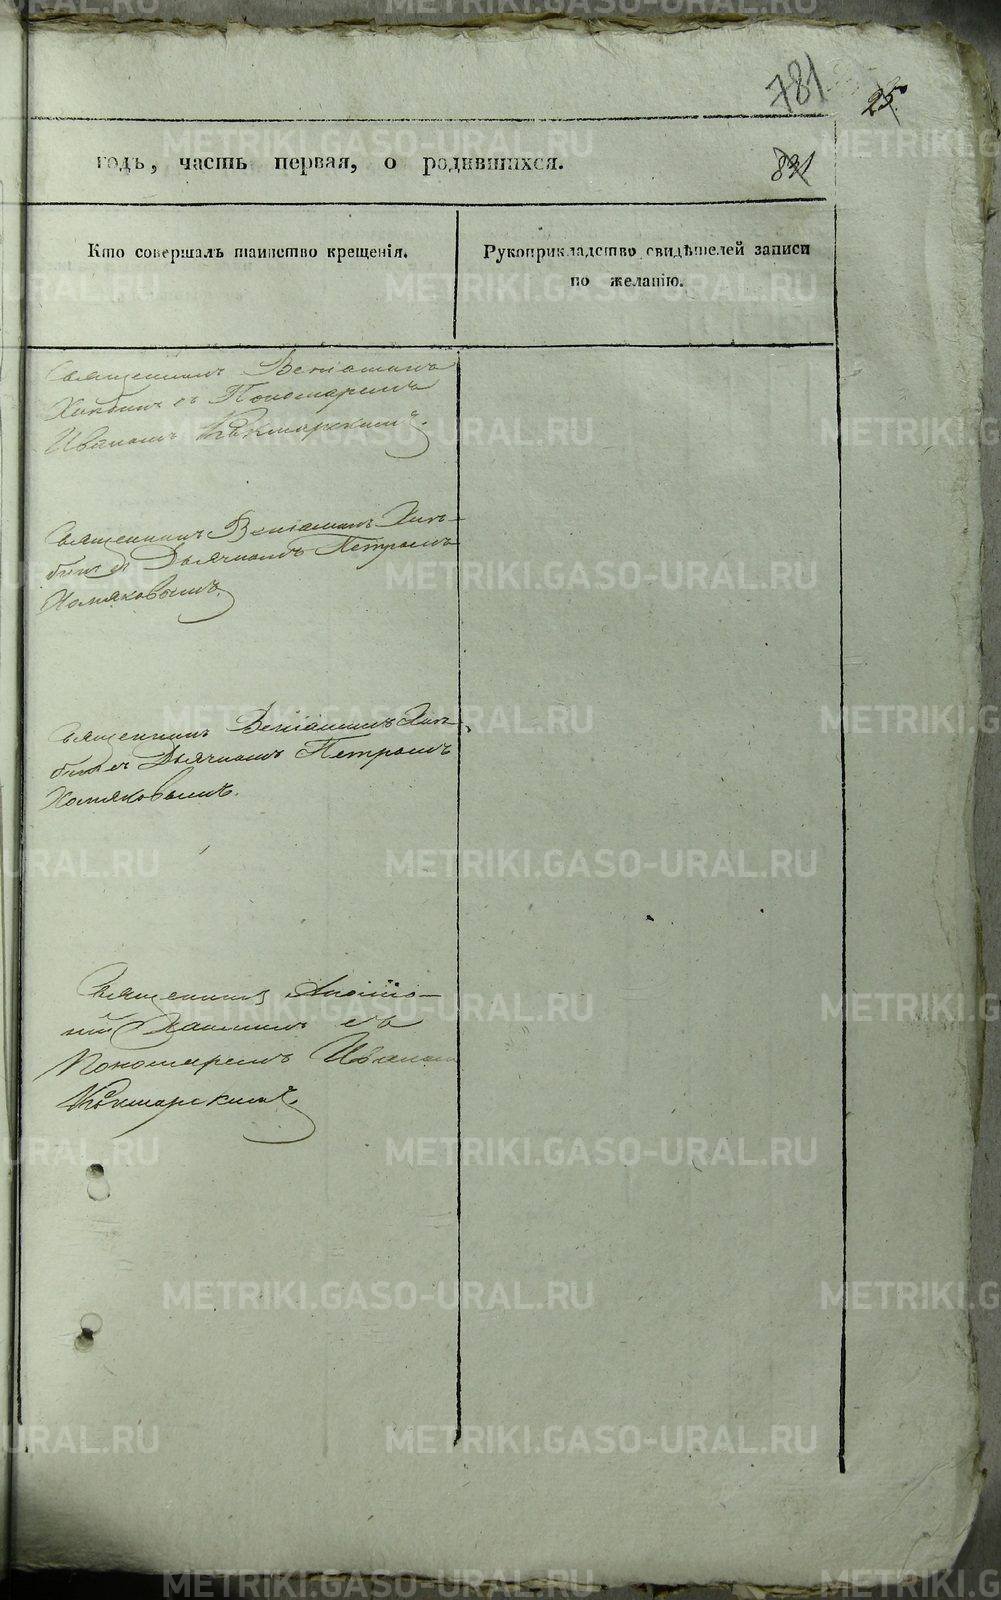 781
25
831
годъ, часть первая, о родившихся.
Кто совершалъ таинство крещенія.
Рукоприкладство свидѣтелей записи
по желанію.
Священникъ Веніаминъ
Хлѣбинъ съ Пономаремъ
Иваномъ
Священникъ Веніаминъ Хлѣ-
бинъ съ Дьячкомъ Петромъ
Хомяковымъ.
Священникъ Веніаминъ Хлѣ-
бинъ съ Дьячкомъ Петромъ
Хомяковымъ.
Священникъ
съ
Пономаремъ Иваномъ
METRIKI.GASO-URAL.RU